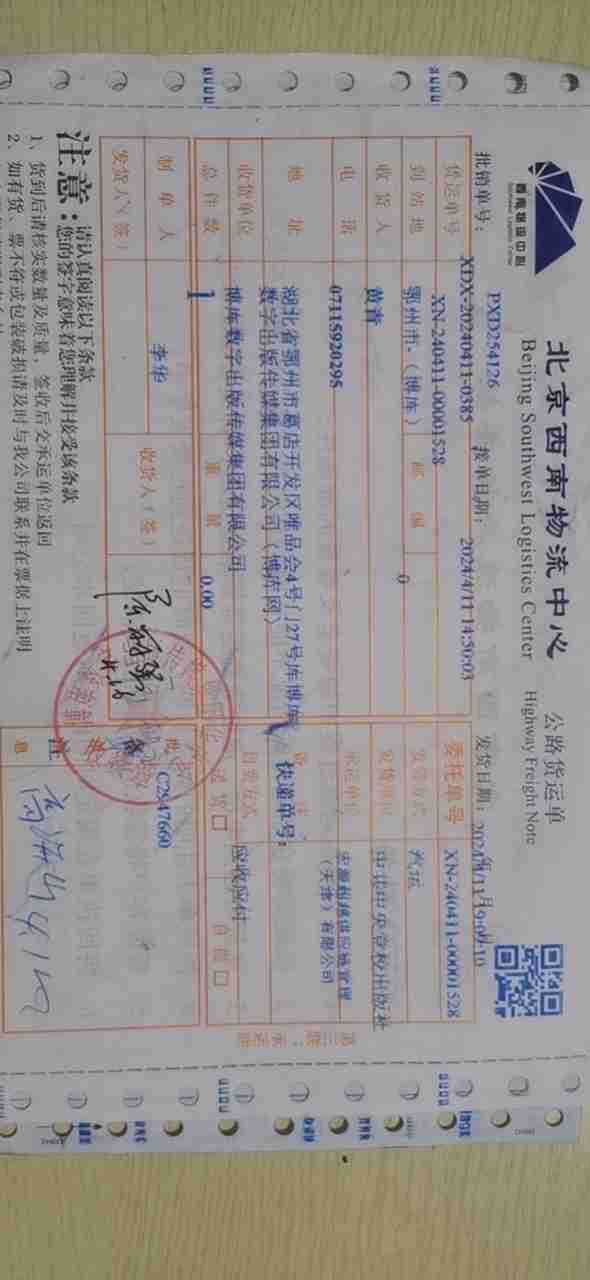 西南物流中心
Southwest Logistics Center
北京西南物流中心
Beijing Southwest Logistics Center
公路货运单
Highway Freight Note
批销单号： PXD254126
接单日期： 2024/4/11 14:50:03
发货日期：
货运单号 XDX-20240411-0385
XN-240411-00001528
委托单号 XN-240411-00001528
到站地 鄂州市（博库） 邮编 0 发货方式 汽运
收货人 黄青 发货单位 中共中央党校出版社
电话 07115920295 承运单位
（天津）有限公司
地址 湖北省鄂州市葛店开发区唯品会4号门27号库博库
数字出版传媒集团有限公司（博库网）
快递单号：
收货单位 博库数字出版传媒集团有限公司
付费方式 应收应付
总件数 1 重量 0.00 送货 自提
制单人 李华 收货人（签）
发货人（签）
C2547660
备注
第三联：承运联
注意：
请认真阅读以下条款
您的签字意味着您理解并接受该条款
1、货到后请核实数量及质量，签收后交承运单位返回
2、如有货、票不符或包装破损请及时与我公司联系并在票据上注明